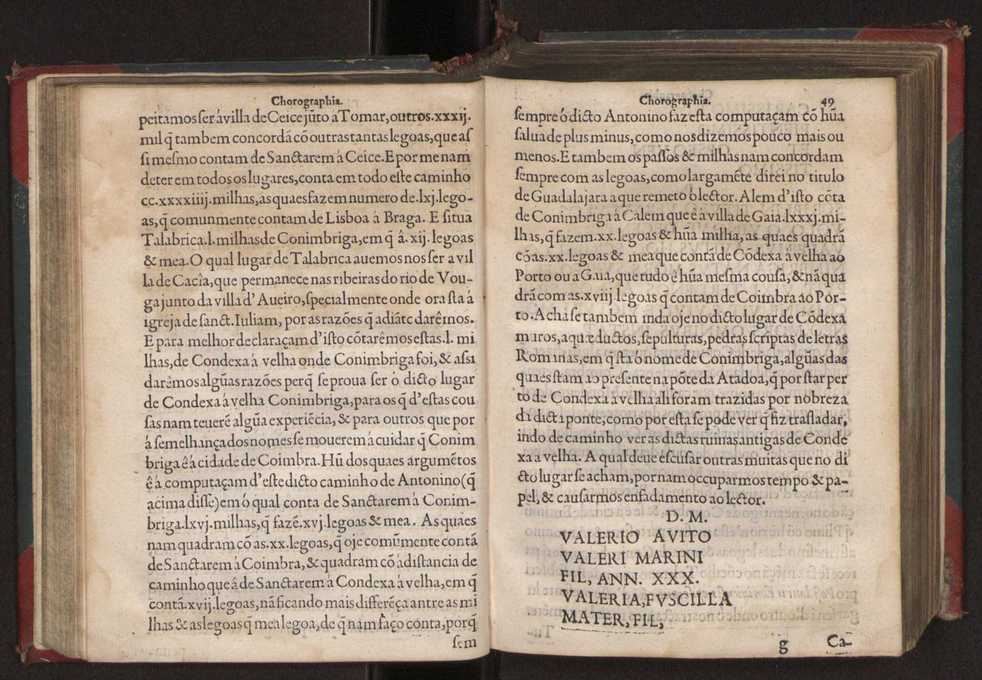 Chorographia.
peitamos ser á villa de Ceice jũto a Tomar, outros.xxxij.
mil q̃ tambem concordã cõ outras tantas legoas, que as
si mesmo contam de Sanctarem à Ceice. E por me nam
deter em todos os lugares, conta em todo este caminho
cc.xxxxiiij.milhas, as quaes fazem numero de.lxj.lego-
as, q̃ comunmente contam de Lisboa à Braga. E situa
Talabrica.l.milhas de Conimbriga, em q̃ â.xij.legoas
& mea. O qual lugar de Talabrica auemos nos ser a vil
la de Cacîa, que permanece nas ribeiras do rio de Vou-
ga junto da villa d'Aueiro, specialmente onde ora sta à
igreja de sanct. Iuliam, por as razões q̃ adiãte darêmos.
E para melhor declaraçam d'isto cõtarêmos estas.l.mi
lhas, de Condexa à velha onde Conimbriga foi, & assi
darêmos algũas razões perq̃ se proua ser ò dicto lugar
de Condexa à velha Conimbriga, para os q̃ d'estas cou
sas nam teuerẽ algũa experiẽcia, & para outros que por
á semelhança dos nomes se mouerem à cuidar q̃ Conim
briga ê à cidade de Coimbra. Hũ dos quaes argumẽtos
ê à computaçam d'este dicto caminho de Antonino (q̃
acima disse) em ó qual conta de Sanctarem à Conim-
briga.lxvj.milhas, q̃ fazẽ.xvj.legoas & mea. As quaes
nam quadram cõ as.xx.legoas, q̃ oje comũmente contã
de Sanctarem à Coimbra, & quadram cõ à distancia de
caminho que â de Sanctarem à Condexa à velha, em q̃
contã.xvij.legoas, nã ficando mais differẽça antre as mi
lhas & as legoas q̃ mea legoa, de q̃ nam faço conta, porq̃
sem
Chorographia. 49
sempre ò dicto Antonino faz esta computaçam cõ hũa
salua de plus minus, como nos dizemos pouco mais ou
menos. E tambem os passos & milhas nam concordam
sempre com as legoas, como largamẽte direi no titulo
de Guadalajara a que remeto o lector. Alem d'isto cõta
de Conimbriga à Calem que ê a villa de Gaia.lxxxj.mi-
lhas, q̃ fazem.xx.legoas & hũa milha, as quaes quadrã
cõ as.xx.legoas & mea que contã de Cõdexa à velha aò
Porto ou a Gaia, que tudo ê hũa mesma cousa, & nã qua
drã com as.xviij.legoas q̃ contam de Coimbra ao Pór-
to. Acha se tambem inda oje no dicto lugar de Cõdexa
muros, aqueductos, sepulturas, pedras scriptas de letras
Romanas, em q̃ stá ò nome de Conimbriga, algũas das
quaes stam ao presente na põte da Atadoa, q̃ por star per
to de Condexa a velha ali foram trazidas por nobreza
da dicta ponte, como por esta se pode ver q̃ fiz trasladar,
indo de caminho ver as dictas ruinas antigas de Conde
xa a velha. A qual deue escusar outras muitas que no di
cto lugar se acham, por nam occuparmos tempo & pa-
pel, & causarmos enfadamento ao lector.
D. M.
VALERIO AVITO
VALERI MARINI
FIL, ANN. XXX.
VALERIA, FVSCILLA
MATER, FIL,
g Ca-